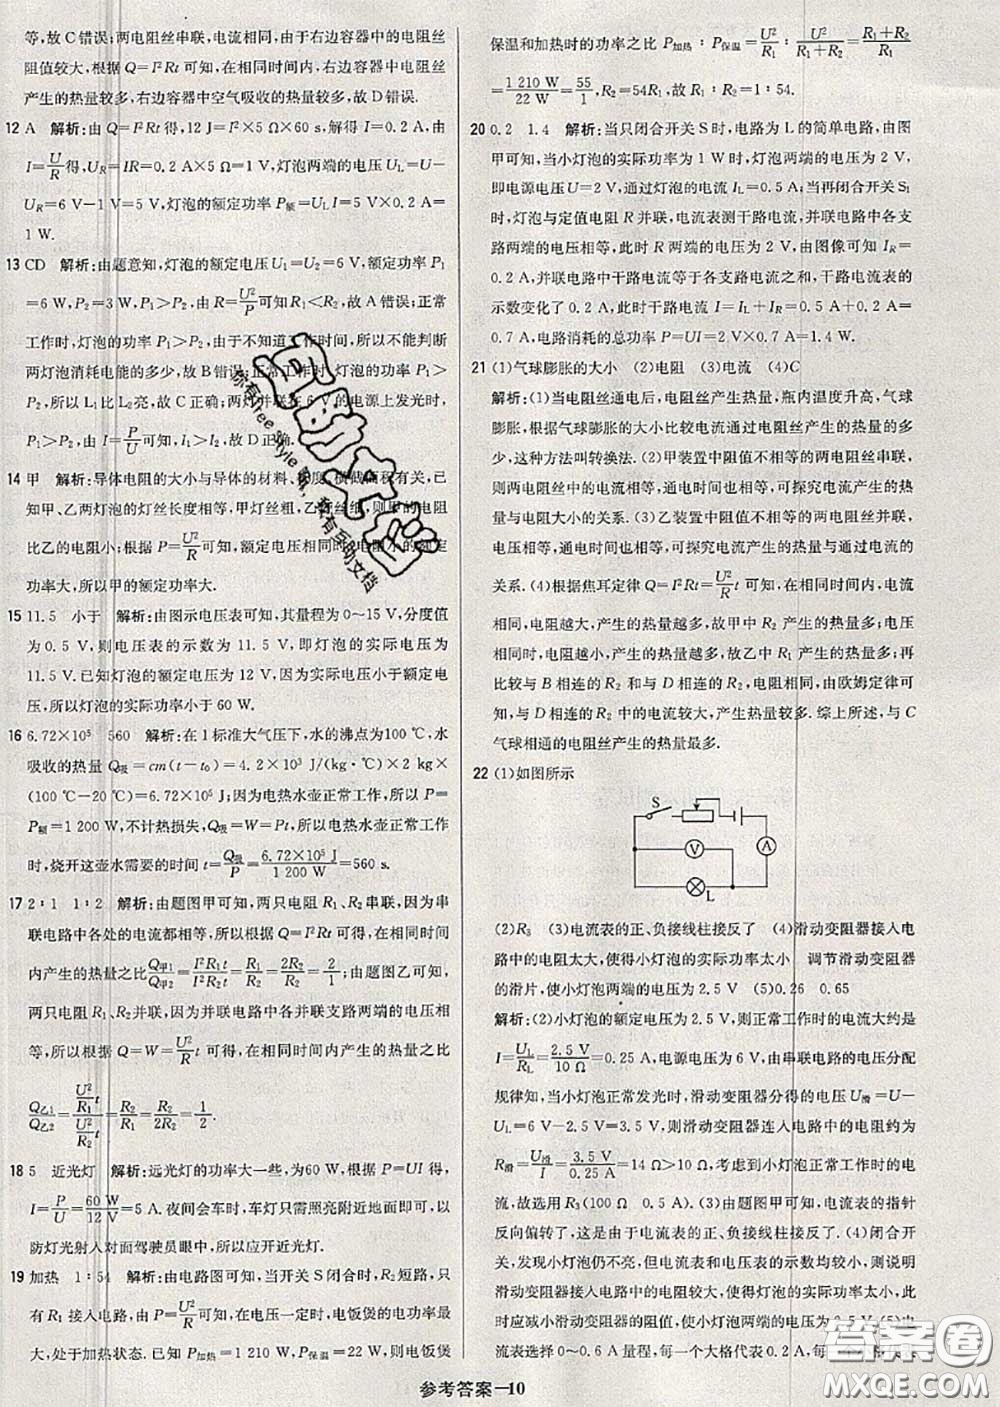 等,故 C 错误;两电阻丝串联,电流相同,由于右边容器中的电阻丝
阻值较大,根据 Q=I²Rt 可知,在相同时间内,右边容器中电阻丝
产生的热量较多,右边容器中空气吸收的热量较多,故 D 错误.
12 A 解析:由 Q=I²Rt 得,12 J=I²×5 Ω×60 s,解得 I=0.2 A,由
I=U/R 得,U_R=IR=0.2 A×5 Ω=1 V,灯泡两端的电压 U_L=U-
U_R=6 V-1 V=5 V,灯泡的额定功率 P额=U_L I=5 V×0.2 A=
1 W.
13 CD 解析:由题意知,灯泡的额定电压 U₁=U₂=6 V,额定功率 P₁
=6 W,P₂=3 W,P₁>P₂,由 R=U²/P 可知 R₁<R₂,故 A 错误;正常
工作时,灯泡的功率 P₁>P₂,由于不知道工作时间,所以不能判断
两灯泡消耗电能的多少,故 B 错误;正常工作时,灯泡的功率 P₁>
P₂,所以 L₁ 比 L₂亮,故 C 正确;两灯并联在 6 V 的电源上发光时,
P₁>P₂,由 I=P/U 可知,I₁>I₂,故 D 正确.
14 甲 解析:导体电阻的大小与导体的材料、长度、横截面积有关,已
知甲、乙两灯泡的灯丝长度相等,甲灯丝粗,乙灯丝细,则甲的电阻
比乙的电阻小;根据 P=U²/R 可知,额定电压相同时,电阻小的额定
功率大,所以甲的额定功率大.
15 11.5 小于 解析:由图示电压表可知,其量程为 0~15 V,分度值
为 0.5 V,则电压表的示数为 11.5 V,即灯泡的实际电压为
11.5 V.已知灯泡的额定电压为 12 V,因为灯泡的实际电压小于额定电
压,所以灯泡的实际功率小于 60 W.
16 6.72×10⁵ 560 解析:在 1 标准大气压下,水的沸点为100 ℃,水
吸收的热量 Q吸=cm(t-t₀)=4.2×10³ J/(kg·℃)×2 kg×
(100 ℃-20 ℃)=6.72×10⁵ J;因为电热水壶正常工作,所以 P=
P额=1 200 W,不计热损失,Q吸=W=Pt,所以电热水壶正常工作
时,烧开这壶水需要的时间 t=Q吸/P=6.72×10⁵ J/1 200 W=560 s.
17 2∶1 1∶2 解析:由题图甲可知,两只电阻 R₁、R₂ 串联,因为串
联电路中各处的电流都相等,所以根据 Q=I²Rt 可得,在相同时间
内产生的热量之比 Q甲1/Q甲2=I²R₁t/I²R₂t=R₁/R₂=2R₂/R₂=2/1;由题图乙可知,
两只电阻 R₁、R₂并联,因为并联电路中各并联支路两端的电压相
等,所以 Q=W=U²/R t 可得,在相同时间内产生的热量之比
Q乙1/Q乙2=(U²/R₁ t)/(U²/R₂ t)=R₂/R₁=R₂/2R₂=1/2.
18 5 近光灯 解析:远光灯的功率大一些,为60 W,根据 P=UI 得,
I=P/U=60 W/12 V=5 A.夜间会车时,车灯只需照亮附近地面即可,以
防灯光射入对面驾驶员眼中,所以应开近光灯.
19 加热 1∶54 解析:由电路图可知,当开关 S 闭合时,R₂ 短路,只
有 R₁ 接入电路,由 P=U²/R 可知,在电压一定时,电饭煲的电功率最
大,处于加热状态.已知 P加热=1 210 W,P保温=22 W,则电饭煲
保温和加热时的功率之比 P加热∶P保温=U²/R₁∶U²/(R₁+R₂)=(R₁+R₂)/R₁
=1 210 W/22 W=55/1,R₂=54R₁,故 R₁∶R₂=1∶54.
20 0.2 1.4 解析:当只闭合开关 S 时,电路为 L 的简单电路,由图
甲可知,当小灯泡的实际功率为 1 W 时,灯泡两端的电压为 2 V,
即电源电压 U=2 V,通过灯泡的电流 I_L=0.5 A;当再闭合开关 S₁
时,灯泡与定值电阻 R 并联,电流表测干路电流,并联电路中各支
路两端的电压相等,此时 R 两端的电压为 2 V,由图像可知 I_R=
0.2 A,并联电路中干路电流等于各支路电流之和,干路电流表的
示数变化了 0.2 A,此时干路电流 I=I_L+I_R=0.5 A+0.2 A=
0.7 A,电路消耗的总功率 P=UI=2 V×0.7 A=1.4 W.
21 (1)气球膨胀的大小 (2)电阻 (3)电流 (4)C
解析:(1)当电阻丝通电后,电阻丝产生热量,瓶内温度升高,气球
膨胀,根据气球膨胀的大小比较电流通过电阻丝产生的热量的多
少,这种方法叫转换法.(2)甲装置中阻值不相等的两电阻丝串联,
则两电阻丝中的电流相等,通电时间也相等,可探究电流产生的热
量与电阻大小的关系.(3)乙装置中阻值不相等的两电阻丝并联,
电压相等,通电时间相等,可探究电流产生的热量与电流的
关系.(4)根据焦耳定律 Q=I²Rt=U²/R t 可知,在相同时间内,电流
相同时,电阻越大,产生的热量越多,故甲中 R₂ 产生的热量多;电
压相同时,电阻越小,产生的热量越多,故乙中 R₁ 产生的热量多;再
比较与 B 相连的 R₂ 和与 D 相连的 R₂ 中的电流,由欧姆定律可
知,与 D 相连的 R₂ 中的电流较大,产生热量较多.综上所述,与 C
气球相通的电阻丝产生的热量最多.
22 (1)如图所示
S
V
A
L
(2)R₃ (3)电流表的正、负接线柱接反了 (4)滑动变阻器接入电
路中的电阻太大,使得小灯泡的实际功率太小 调节滑动变阻器
的滑片,使小灯泡两端的电压为 2.5 V (5)0.26 0.65
解析:(2)小灯泡的额定电压为 2.5 V,则正常工作时的电流大约是
I=U_L/R_L=2.5 V/10 Ω=0.25 A,电源电压为 6 V,由串联电路的电压分配
规律知,当小灯泡正常发光时,滑动变阻器分得的电压为 U滑=U-
U_L=6 V-2.5 V=3.5 V,则滑动变阻器连入电路中的电阻为
R滑=U滑/I=3.5 V/0.25 A=14 Ω>10 Ω,考虑到小灯泡正常工作时的电
流,故选用 R₃(100 Ω 0.5 A).(3)由题图甲可知,电流表的指针
反向偏转了,这是由于电流表的正、负接线柱接反了.(4)闭合开
关,发现小灯泡仍不亮,但电流表、电压表的示数均较小,说明滑动
变阻器接入电路中的电阻较大,使得小灯泡两端的电压太小,此
时应减小滑动变阻器的阻值,使小灯泡两端的电压为 2.5 V.(5)电流
表选择 0~0.6 A 量程,每一个大格代表 0.2 A,每一个小格代表
参考答案—10
答案圈
MXQE.COM